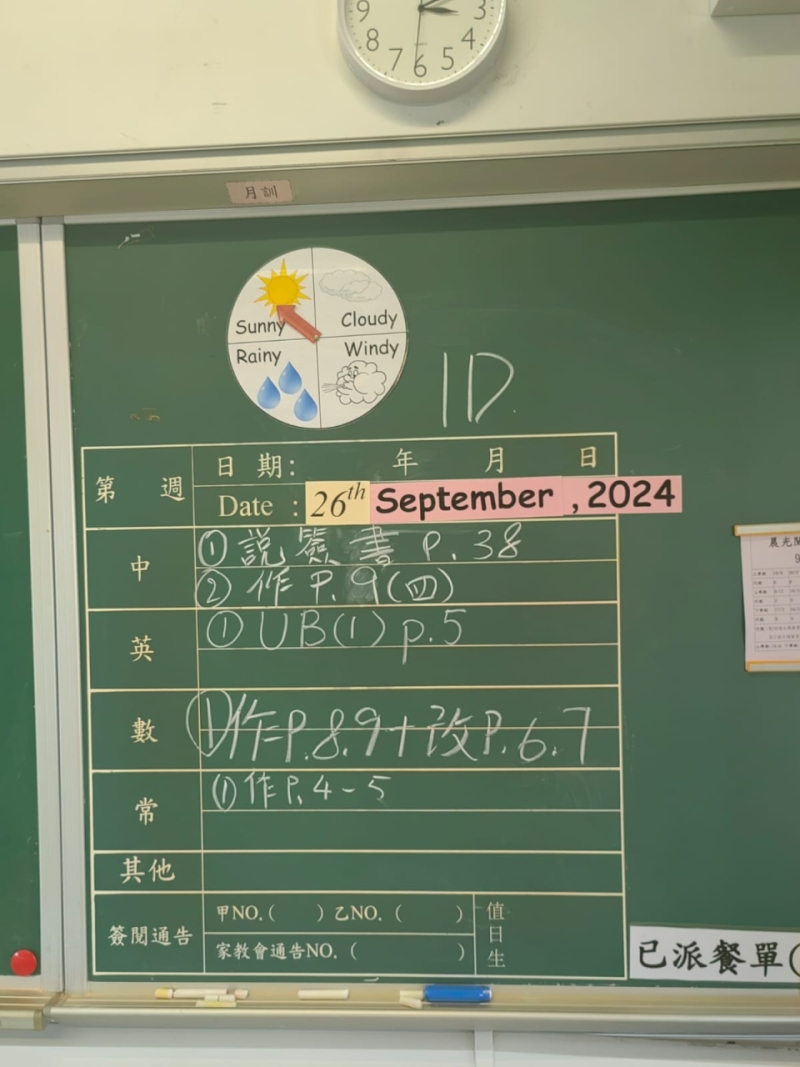 9 3
8 4
7 6 5
月訓
Sunny Cloudy
Rainy Windy
1D
第 週 日期: 年 月 日
Date : 26th September , 2024
中 ① 說 簽 書 P.38
② 作 P.9(四)
英 ① UB(1) p.5
數 ①作P.8.9+改P.6.7
常 ① 作 P.4-5
其他
簽閱通告 甲NO.( ) 乙NO. ( ) 值日生
家教會通告NO. ( )
已派餐單
晨光閱